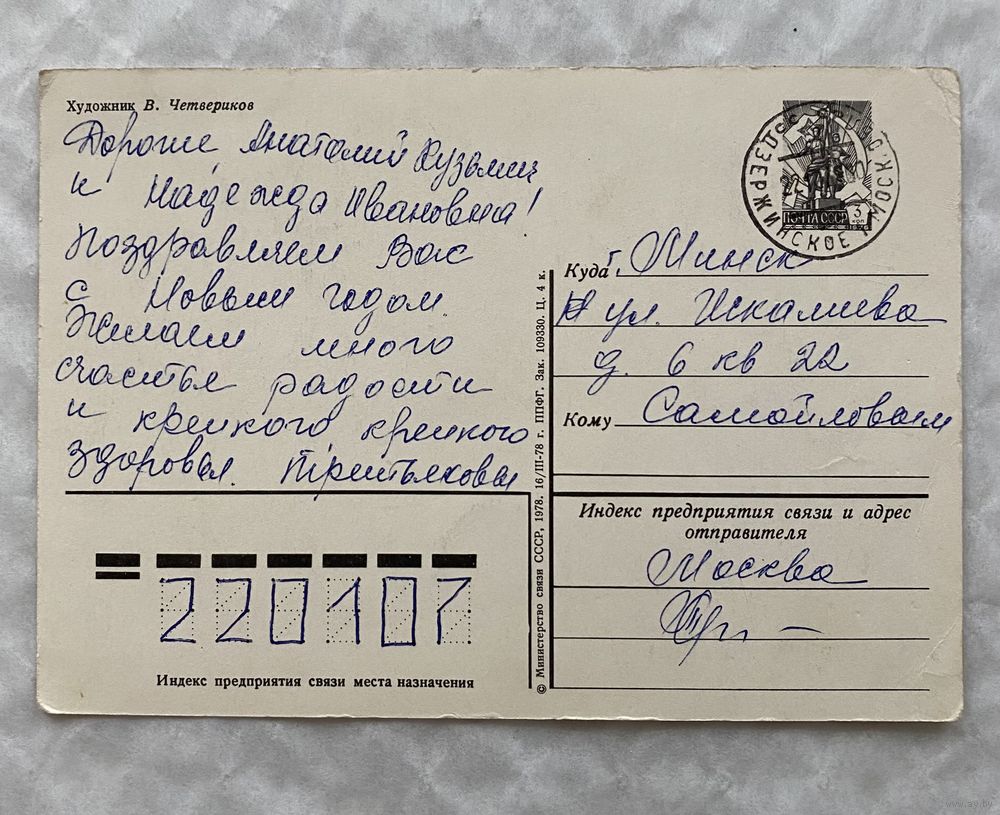 Художник В. Четвериков
Дорогие Анатолий Кузьмич
и Надежда Ивановна!
Поздравляем Вас
с Новым годом.
Желаем много
счастья радости
и крепкого крепкого
здоровья. Третьяковы
ПОЧТА СССР
3 коп
1976
ДЗЕРЖИНСКОЕ МОСК.
Куда г. Минск
ул. Искалиева
д. 6 кв 22
Кому Самойловым
Индекс предприятия связи и адрес
отправителя
Москва
© Министерство связи СССР, 1978. 16/III-78 г. ППФГ. Зак. 109330. Ц. 4 к.
220107
Индекс предприятия связи места назначения
www.ay.by